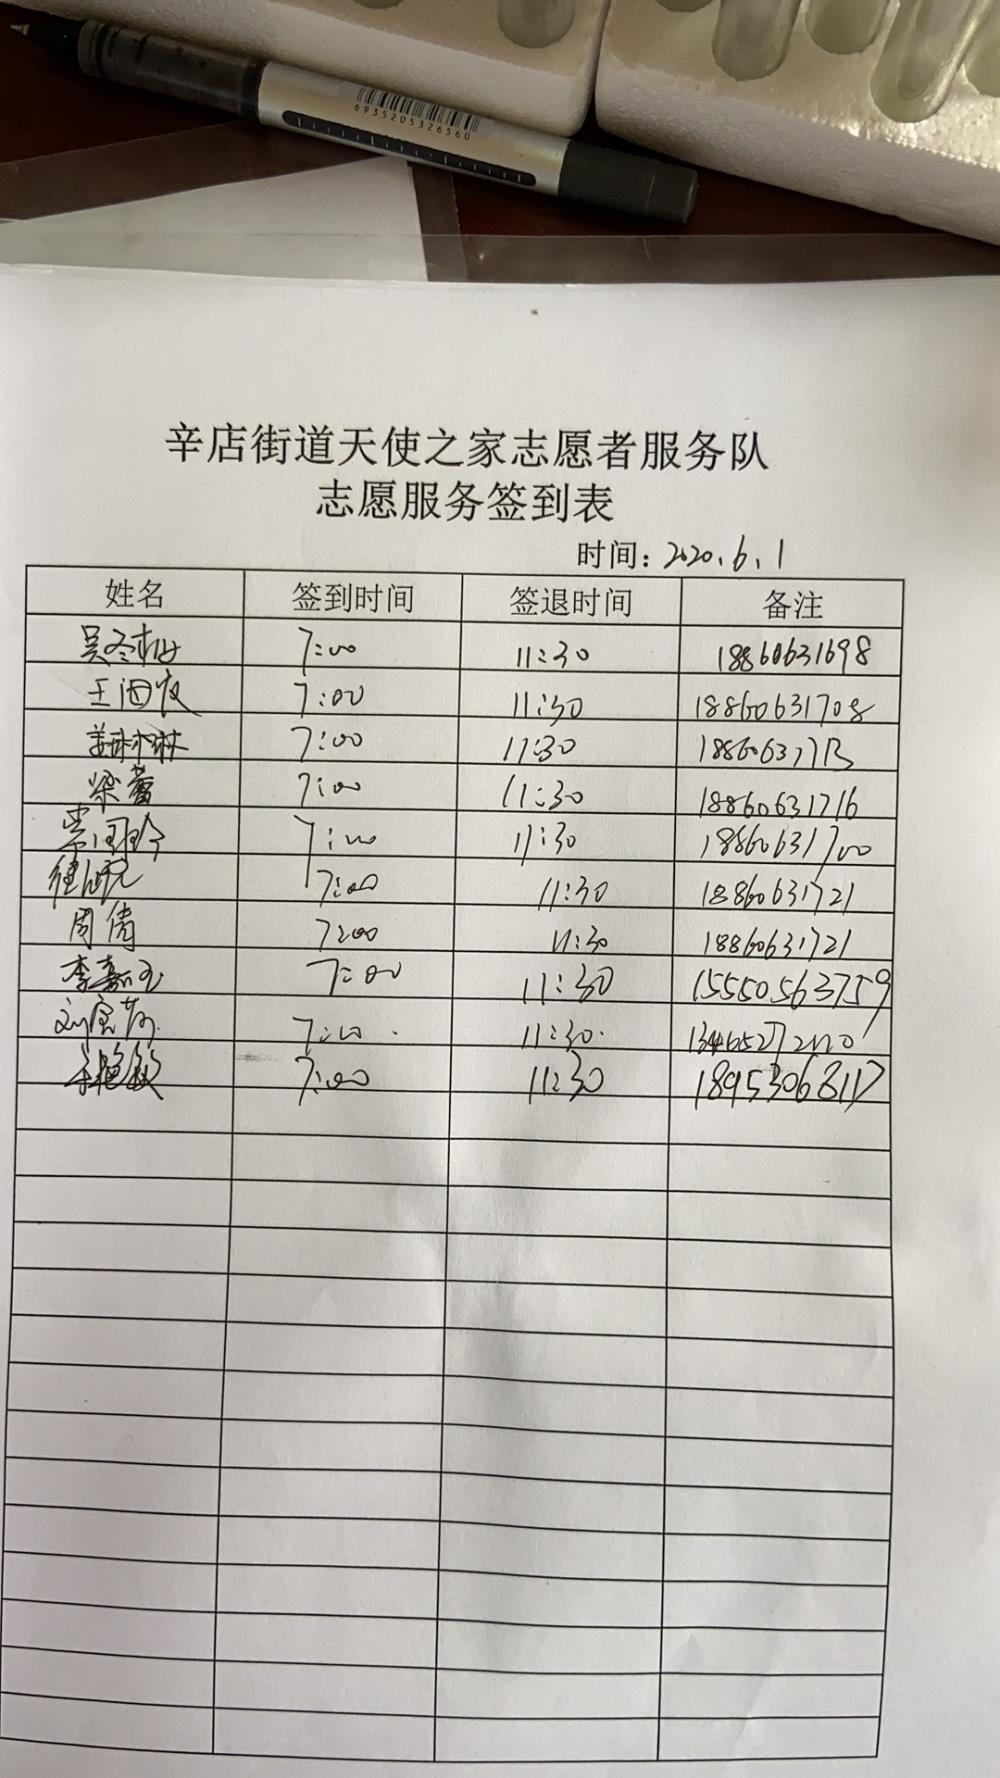 6935205326560
辛店街道天使之家志愿者服务队
志愿服务签到表
时间：2020.6.1
姓名 签到时间 签退时间 备注
吴冬梅 7:00 11:30 18860631698
王 7:00 11:30 18860631708
姜琳琳 7:00 11:30 18860631713
梁蕾 7:00 11:30 18860631716
7:00 11:30 18860631700
7:00 11:30 18860631721
周倩 7:00 11:30 18860631721
李嘉玉 7:00 11:30 15550563759
刘 7:00 11:30
7:00 11:30 18953068117